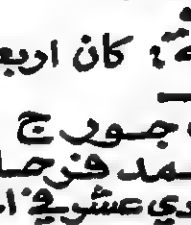 كان اربع
جورج
مد فرحا
دي عشر في ا